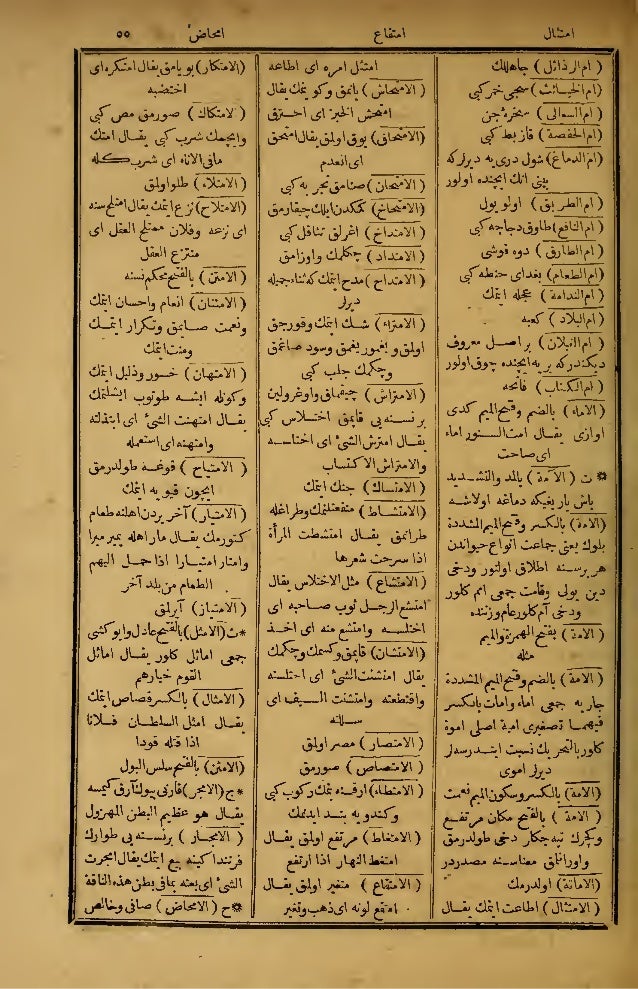 امتثال
امتقاع
امحاض
٥٥
( ام الرذائل ) جاهللك
( ام الخبائث ) سجى خمر كبى
( ام السعالى ) سخره جن
( ام الحفصة ) قاز بط كبى
( ام الدماغ ) شول درى يه ديرلركه
بينى انك ايچنده اولور
( ام الطريق ) اولو يول
( ام النافع ) طاوق دجاجه كبى
( ام الطارق ) دوه قوشى
( ام الطعام ) بغداى حنطه كبى
( ام الندامة ) عجله ايتمك
( ام البلاد ) كعبه
( ام الغيلان ) بر اصل معروف
ديكندركه بريه ايچنده چوق اولور
( ام الكتاب ) فاتحه
( الاماء ) بالضم وفتح الميم كدى
اوازى يقال امت السنور اماء
اى صاحت
* ت ( الآمة ) بالمد والتشديد
باش ياريغيكه دماغه اولاشه
( الامة ) بالكسر وفتح الميم المشددة
بلوك يعنى جماعت انواع حيواندن
هر برسنه اطلاق اولنور ودخى
دين يولى وقامت جمعى امم كلور
ودخى آم كلور عام وزننده
( الامة ) بفتح الهمزة والميم
مثله
( الامة ) بالضم وفتح الميم المشددة
جاريه جمعى اماء وامات بالكسر
فيهما تصغيرى امية اصلى اموة
كلور بالتحريك نسبت ايتدرسه لر
ديرلر اموى
( الامة ) بالكسر وسكون الميم نعمت
( الامة ) بالفتح مكان مرتفع
وكيرك تپه جكلر دخى طولدرمق
واورانلاق معناسنه مصدردر
( الاماتة ) اولدرمك
( الامتثال ) اطاعت ايتمك يقال
امتثل امره اى اطاعه
( الامتحاش ) يانمق وكوينمك يقال
امتحش الخبز اى احترق
( الامتحاق ) يوق اولمق يقال امتحق
اى انعدم
( الامتحان ) صنامق تجربه كبى
( الامتخاخ ) كمكدن ايلك چيقارمق
( الامتداخ ) اغرلق تثاقل كبى
( الامتداد ) چكلمك واوزامق
( الامتداح ) مدح ايتمك كه ثناء جميله
ديرلر
( الامتراء ) شك ايتمك وقورجق
اولق و يغمور يغمق وسود صاغمق
وچكمك جلب كبى
( الامتراش ) چيقماق واوغرولين
برنسنه يى قاپمق اختلاس كبى
يقال امترش الشئ اى اختلسه
والامتراش الاكتساب
( الامتساك ) چنك ايتمك
( الامتشاط ) منفعتلنمك وطراغله
طرانمق يقال امتشطت المرأة
اذا سرحت شعرها
( الامتشاع ) مثل الاختلاس يقال
امتشع الرجل ثوب صاحبه اى
اختلسه وامتشع منه اى اخذ
( الامتشان ) قاپمق وكسمك وچكمك
يقال امتشنت الشئ اى اختلسته
واقتطعته وامتشنت السيف اى
سللته
( الامتصار ) مصر اولمق
( الامتصاص ) صورمق
( الامتطاء ) ارقه يه بنمك ركوب كبى
وكندويه بند ايدنمك
( الامتغاط ) مرتفع اولمق يقال
امتغط النهار اذا ارتفع
( الامتقاع ) متغير اولمق يقال
امتقع لونه اى ذهب وتغير
( الامتكار ) بويامق يقال امتكره اى
اختضبه
( الامتكاك ) صورمق مص كبى
وايچمك شرب كبى يقال امتك
مافى الاناء اى شرب كله
( الامتلاء ) طلو اولمق
( الامتلاخ ) نزع ايتمك يقال امتلخ سنه
اى نزعه وفلان ممتلخ العقل اى
منتزع العقل
( الامتن ) بالفتح محكم نسنه
( الامتنان ) انعام واحسان ايتمك
ونعمت صايمق وتكرار ايتمك
ومنت ايتمك
( الامتهان ) خور وذليل ايتمك
وكوتله ايشه طوتوب ايشلتمك
يقال امتهنت الشئ اى ابتذلته
وامتهنه اى استعمله
( الامتياح ) قوغه طولدرمق
ايچون قيويه ايتمك
( الامتيار ) آخر يردن اهلنه طعام
كتورمك يقال مار اهله يمير ميرا
وامتار امتيارا اذا حمل اليهم
الطعام من بلد آخر
( الامتياز ) آيرلمق
* ث ( الامثل ) بالفتح عادل وايو كشى
جمعى اماثل كلور يقال اماثل
القوم خيارهم
( الامثال ) بالكسر قصاص ايتمك
يقال امثل السلطان فلانا
اذا قتله قودا
( الامثن ) بالفتح سلس البول
* ج ( الامجر ) قارنى بيوك ارق كيمسه
يقال هو عظيم البطن المهزول
( الامجار ) برنسنه يى طوارك
فرتنداكينه بيع ايتمك يقال امجرت
الشئ اى بعته بمافى بطن هذه الناقة
* ح ( الامحاض ) صافى وخالص